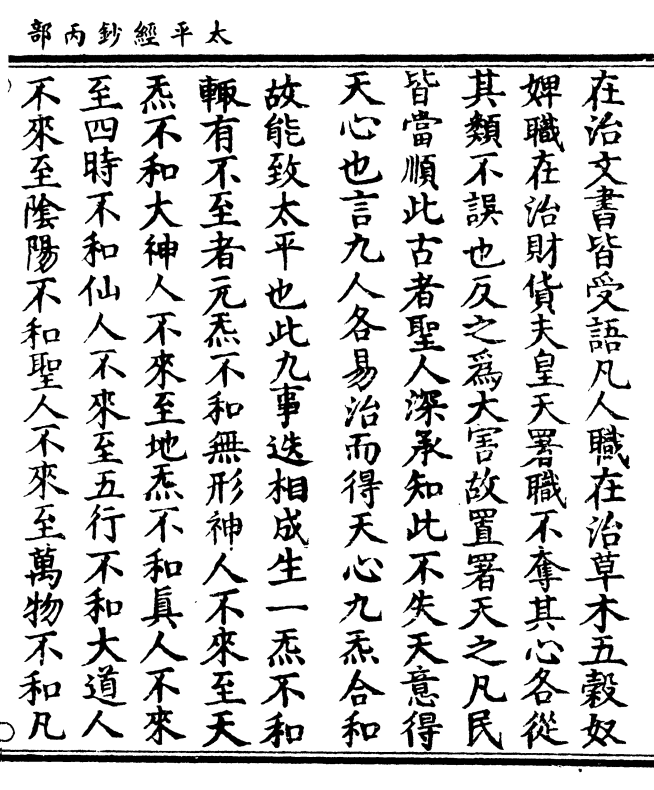 太平經鈔丙部
在治文書皆受語凡人職在治草木五穀奴
婢職在治財貨夫皇天署職不奪其心各從
其類不誤也反之爲大害故置署天之凡民
皆當順此古者聖人深承知此不失天意得
天心也言九人各易治而得天心九炁合和
故能致太平也此九事迭相成生一炁不和
輙有不至者元炁不和無形神人不來至天
炁不和大神人不來至地炁不和眞人不來
至四時不和仙人不來至五行不和大道人
不來至陰陽不和聖人不來至萬物不和凡